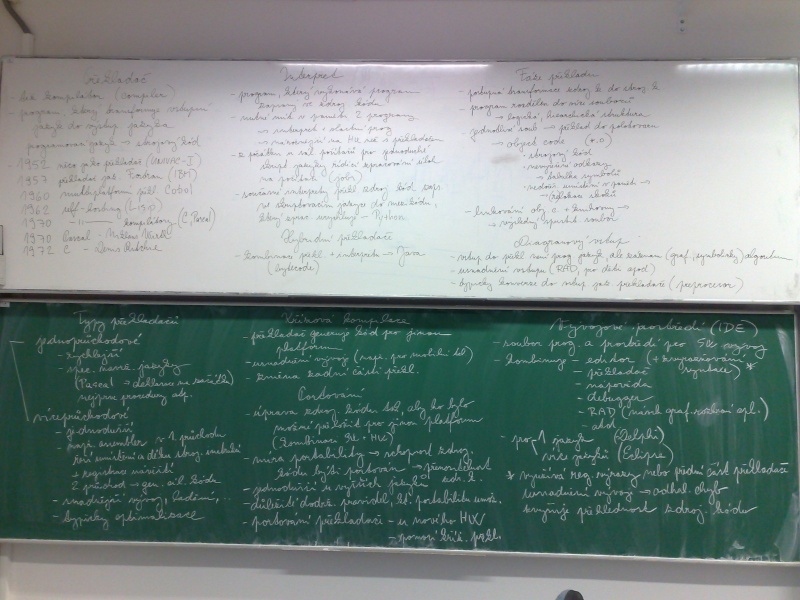 Překladač
- tzv. kompilátor (compiler)
- program, který transformuje vstupní
jazyk do výstup. jazyka
programovací jazyk → strojový kód
1952 (UNIVAC-I)
1957 překladač jaz. Fortran (IBM)
1960 multiplatform. překl. Cobol
1962 self-hosting (LISP)
1970 kompilátory (C, Pascal)
1970 Pascal - Niklaus Wirth
1972 C - Denis Ritchie
Interpret
- program, který vykonává program
zapsaný ve zdroj. kódu
- nutné mít v paměti 2 programy
→ interpret + vlastní prog.
→ náročnější na HW než u překladače
- z počátku u sál. počítačů pro jednoduché
skript. jazyky řídící zpracování úloh
na počítači (jobs)
- současné interprety překl. zdroj. kód
který zprac. rychleji - Python
Hybridní překladače
- kombinace překl. + interpretu → Java
(bytecode)
Fáze překladu
- postupná transformace zdroj. k. do stroj. k.
- program rozdělen do více souborů
→ logická, hierarchická struktura
- jednotlivé soub. → překlad do
→ object code (*.o)
- strojový kód
- nevyřešené odkazy
→ tabulka symbolů
→ relokace
- linkování obj. c. + knihovny →
→ výsledný spustit. soubor
Diagramový vstup
- vstup do překl. není prog. jazyk, ale (graf., symbolický) algoritmu
- usnadnění vstupu (RAD, pro děti apod.)
- typicky konverze do vstup. jaz. překladače (preprocesor)
Typy překladačů
- jednoprůchodové
- rychlejší
- spec. návrh jazyka
(Pascal → deklarace na začátku)
nejprve procedury atp.
víceprůchodové
- jednodušší
- např. assembler v 1. průchodu
řeší umístění a délku stroj. instrukcí
+ registrace návěští
2. průchod → gen. cíl. kódu
- snadnější vývoj, ladění,...
- typicky optimalizace
Křížová kompilace
- překladač generuje kód pro jinou
platformu
- usnadnění vývoj (např. pro mobilní tel.)
- záměna zadní části překl.
Portování
- úprava zdroj. kódu tak, aby ho bylo
možné přeložit pro jinou platform.
(kombinaci SW. + HW)
- míra portability → schopnost zdroj.
kódu být portován → přenositelnost
zdr. k.
- jednodušší u vyšších jazyků
- důležité dodrž. pravidel, kt. portabilitu umožň.
- portování překladače - u nového HW
- pomocí kříž. překl.
Vývojové prostředí (IDE)
- soubor prog. a prostředí pro SW vývoj
- kombinuje - editor (+ zvýrazňování
syntaxe) *
- překladač
- nápověda
- debugger
- RAD (návrh graf. rozhraní apl.)
- atd.
- pro 1 jazyk (Delphi)
více jazyků (Eclipse)
* využívá reg. výrazy nebo přední část překladače
usnadnění vývoj → odhal. chyb
zvyšuje přehlednost zdroj. kódu